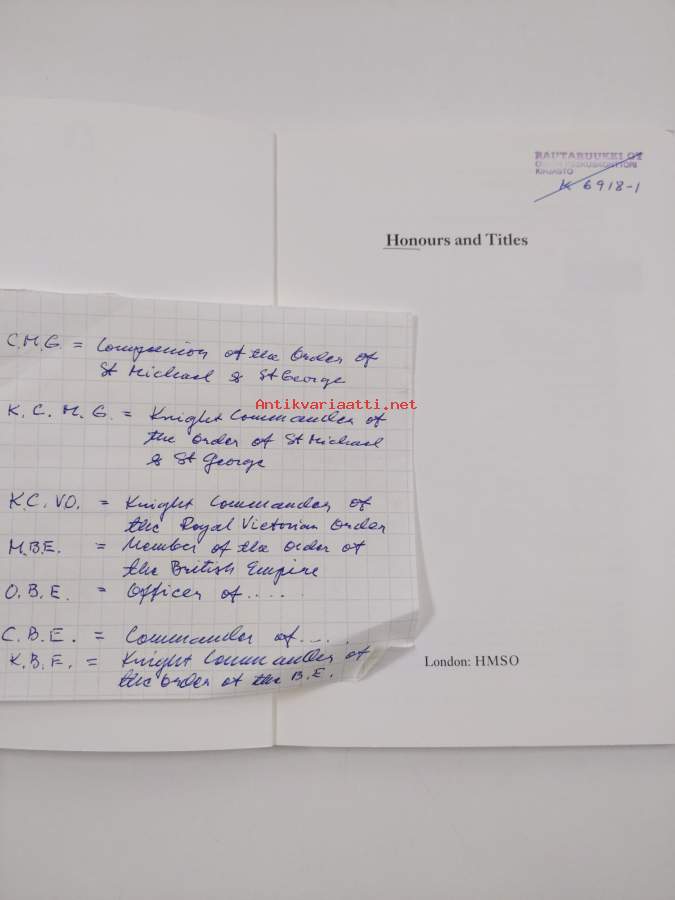 RAUTARUUKKI OY
KESKUSKONTTORI
KIRJASTO
K 6918-1
Honours and Titles
C.M.G. = Companion of the Order of
St Michael & St George
Antikvariaatti.net
K.C.M.G. = Knight Commander of
the Order of St Michael
& St George
K.C.VO. = Knight Commander of
the Royal Victorian Order
M.B.E. = Member of the Order of
the British Empire
O.B.E. = Officer of.....
C.B.E. = Commander of.....
K.B.E. = Knight Commander of
the Order of the B.E.
London: HMSO